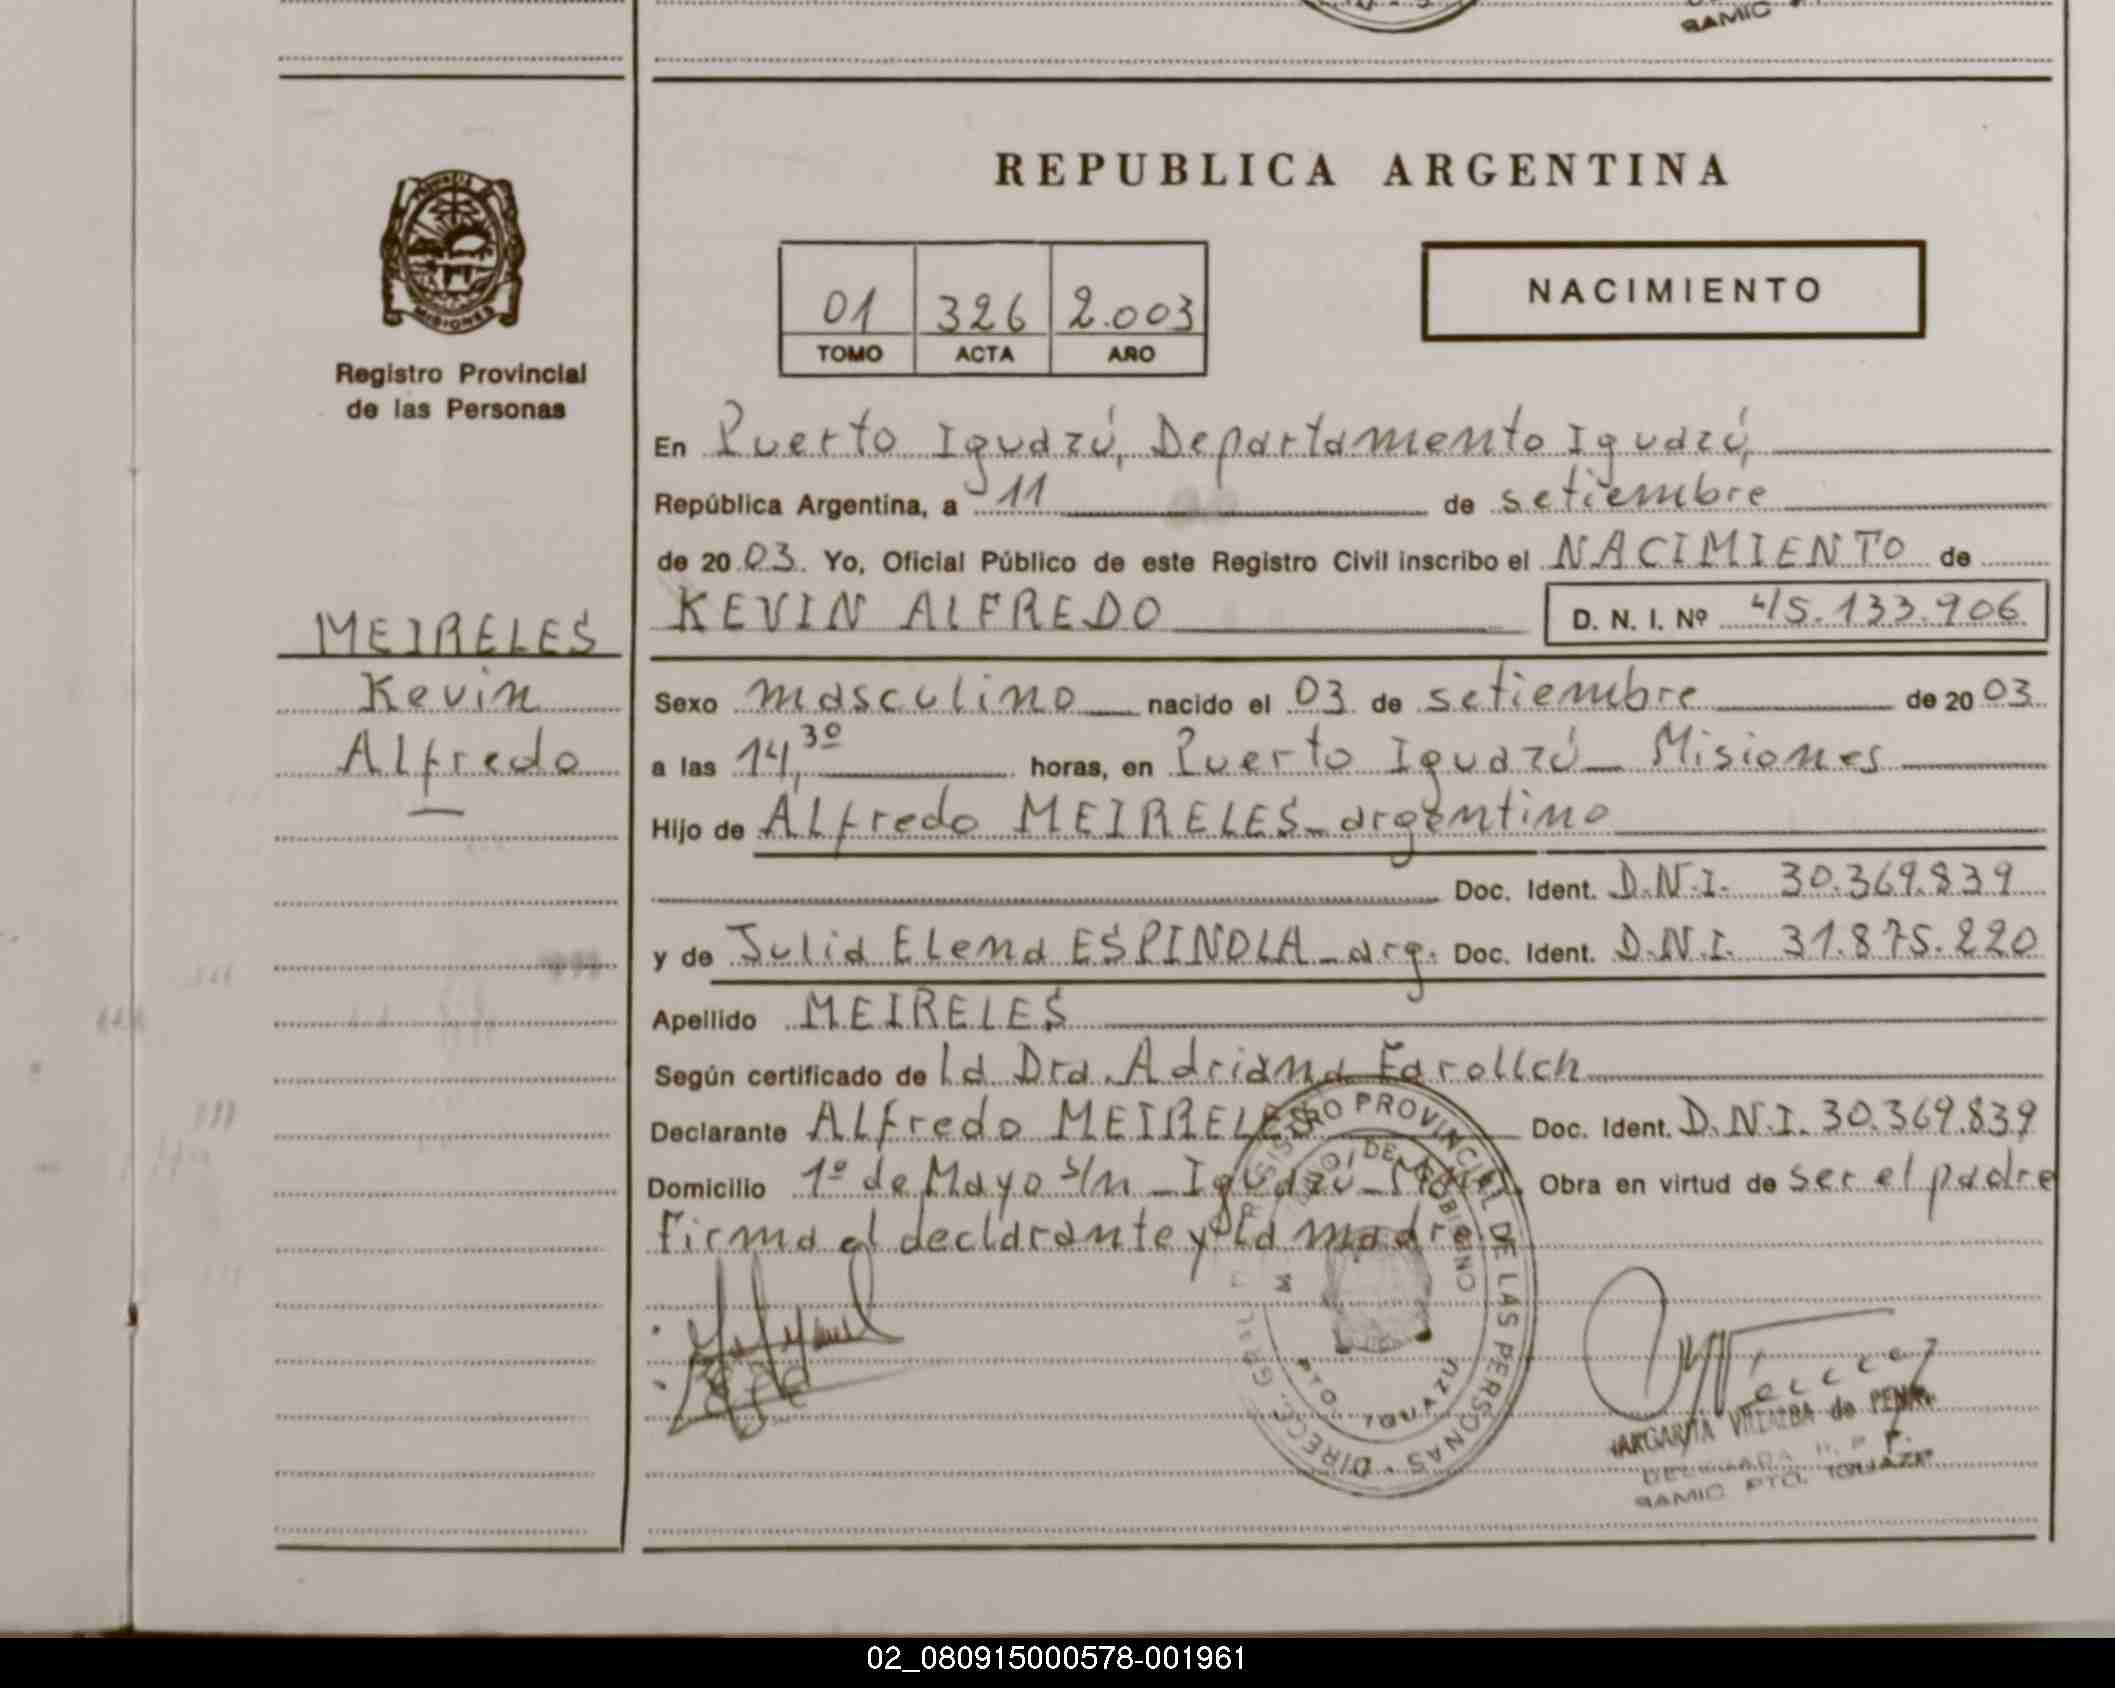 SAMIC
REPUBLICA ARGENTINA
MISIONES
Registro Provincial
de las Personas
01 326 2.003
TOMO ACTA AÑO
NACIMIENTO
En Puerto Iguazú, Departamento Iguazú,
República Argentina, a 11 de setiembre
de 2003. Yo, Oficial Público de este Registro Civil inscribo el NACIMIENTO de
KEVIN ALFREDO D. N. I. Nº 45.133.906
MEIRELES
Kevin
Alfredo
Sexo masculino nacido el 03 de setiembre de 2003
a las 14,30 horas, en Puerto Iguazú_ Misiones
Hijo de Alfredo MEIRELES_argentino
Doc. Ident. D.N.I. 30.369.839
y de Julia Elena ESPINOLA_arg. Doc. Ident. D.N.I. 31.875.220
Apellido MEIRELES
Según certificado de la Dra. Adriana Farollch
Declarante Alfredo MEIRELES Doc. Ident. D.N.I. 30.369.839
Domicilio 1º de Mayo s/n_Iguazú_ Obra en virtud de ser el padre
Firma el declarante y la madre
DIRECC. GRAL. REGISTRO PROVINCIAL DE LAS PERSONAS
DE GOBIERNO
PTO. IGUAZU
MARGARITA VILLALBA de PENA
DELEGADA R. P. P.
SAMIC PTO. IGUAZU
02_080915000578-001961